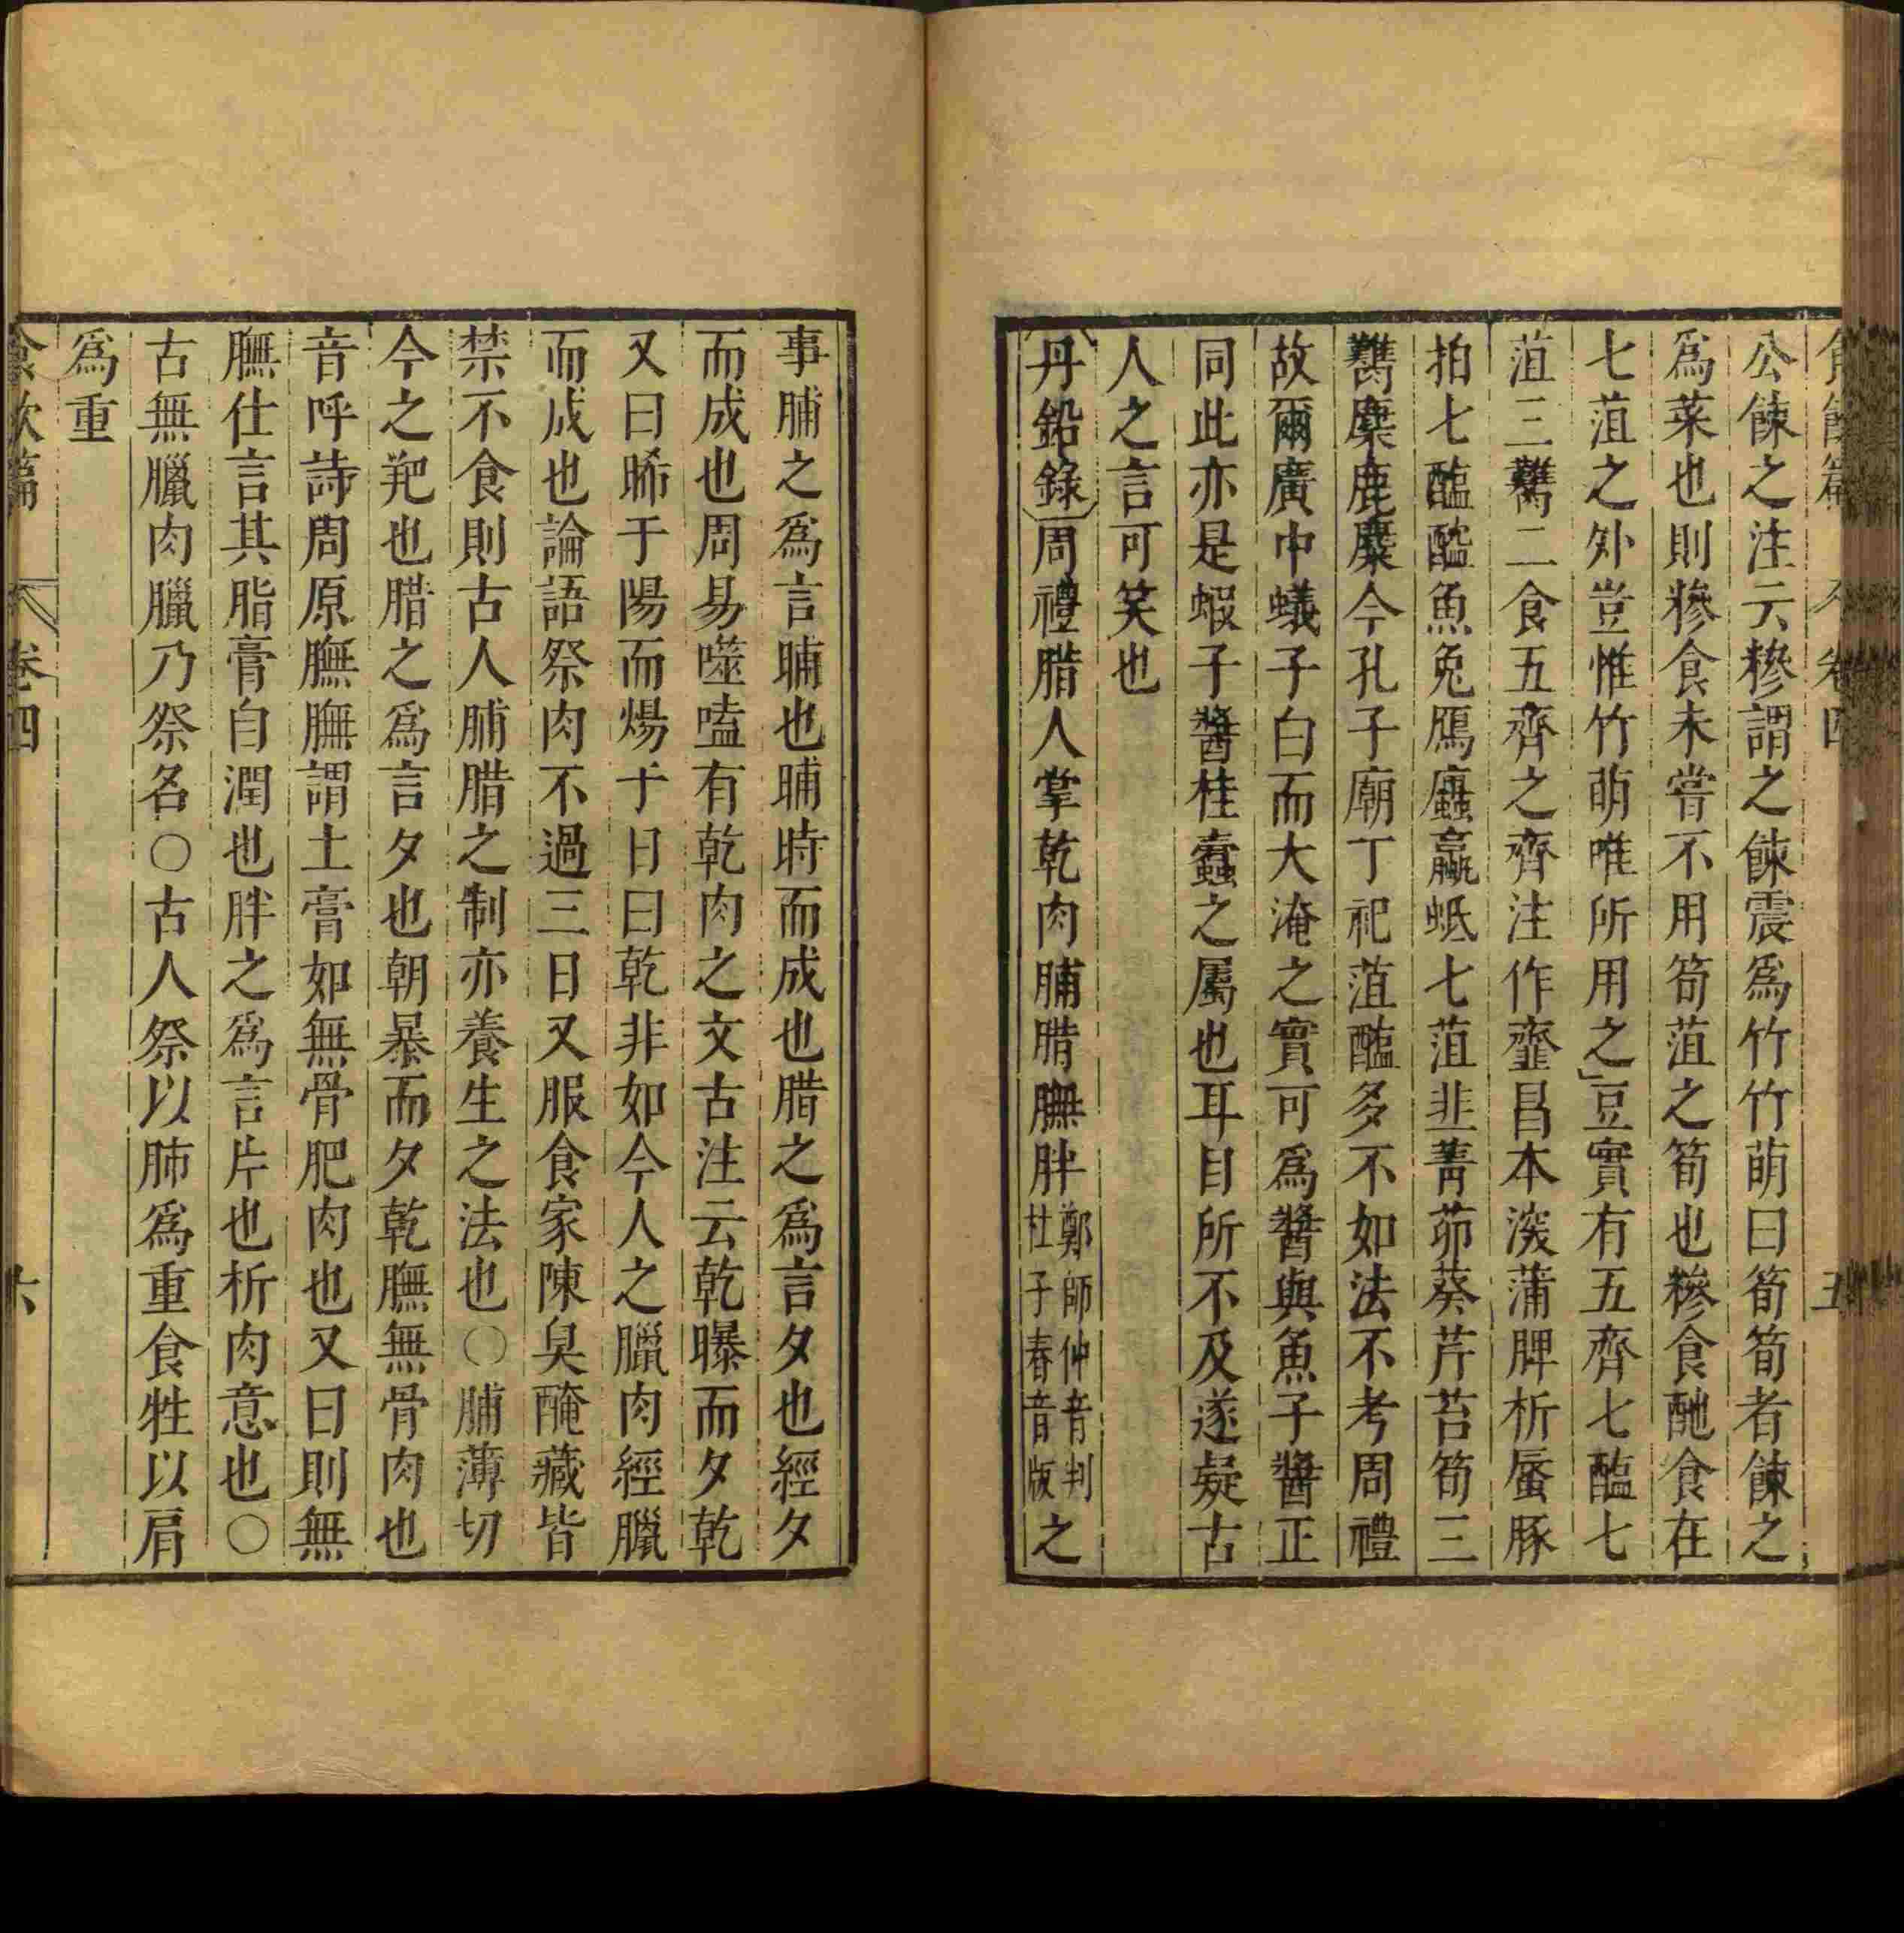 公餗之注云糝謂之餗震爲竹竹萌曰筍筍者餗之
爲菜也則糝食未嘗不用筍菹之筍也糝食酏食在
七菹之外豈惟竹萌唯所用之豆實有五齊七醢七
菹三臡二食五齊之齊注作齏昌本深蒲脾析蜃豚
拍七醢醓魚兔鴈蠯蠃蚳七菹韭菁茆葵芹苔筍三
臡麋鹿麇今孔子廟丁祀菹醢多不如法不考周禮
故爾廣中蟻子白而大淹之實可爲醬與魚子醬正
同此亦是蝦子醬桂蠹之屬也耳目所不及遂疑古
人之言可笑也
丹鉛錄周禮腊人掌乾肉脯腊膴胖鄭師仲音判杜子春音版之
事脯之爲言晡也晡時而成也腊之爲言夕也經夕
而成也周易噬嗑有乾肉之文古注云乾曝而夕乾
又曰晞于陽而煬于日曰乾非如今人之臘肉經臘
而成也論語祭肉不過三日又服食家陳臭醃藏皆
禁不食則古人脯腊之制亦養生之法也○脯薄切
今之羓也腊之爲言夕也朝暴而夕乾膴無骨肉也
音呼詩周原膴膴謂土膏如無骨肥肉也又曰則無
膴仕言其脂膏自潤也胖之爲言片也析肉意也○
古無臘肉臘乃祭名○古人祭以肺爲重食牲以肩
爲重
食飲篇 卷四 六